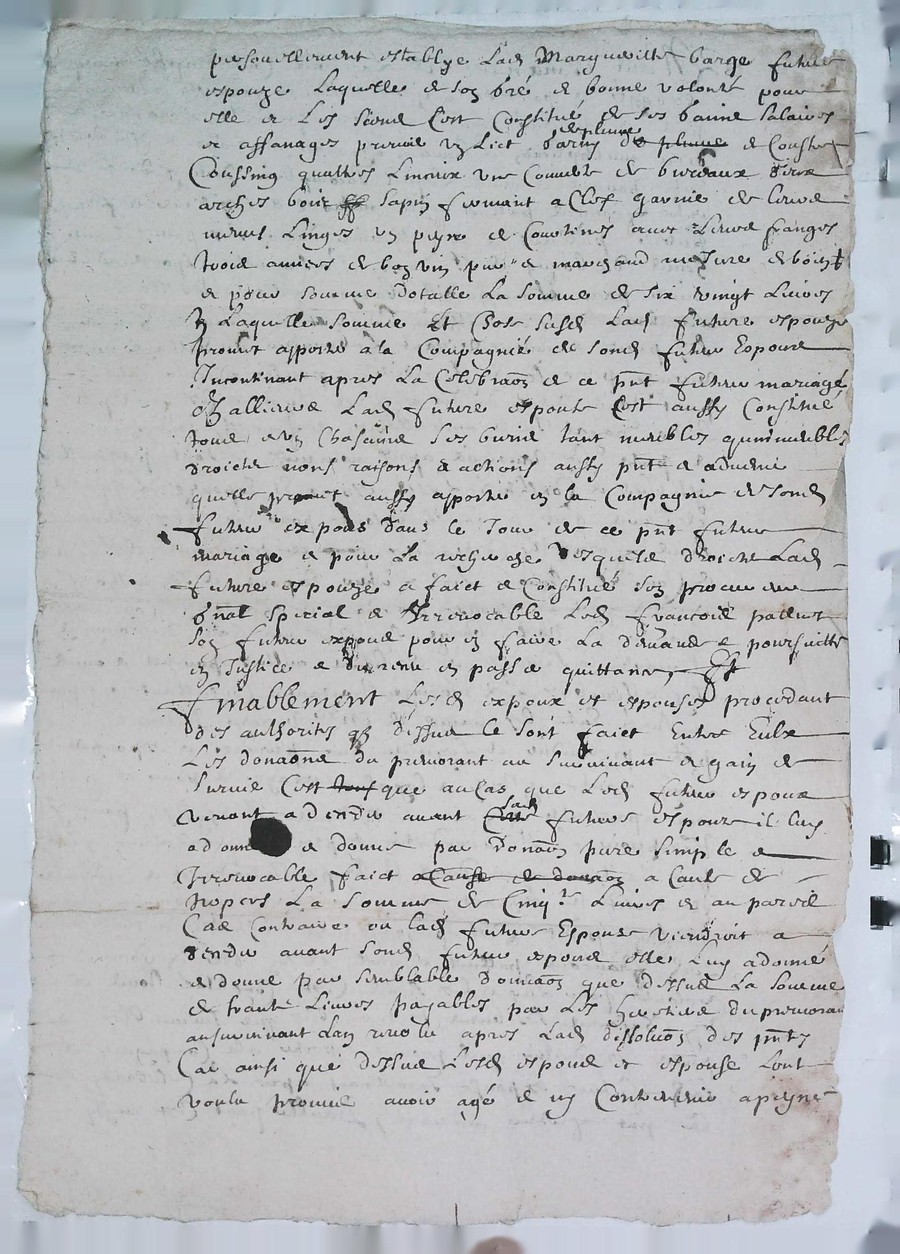 personellement establye Lad Margueritte barge future
espouze Laquelle de son gré & bonne volonté pour
elle & Les siens Cest Constitué de ses biens salaires
& affanages premier un Lict garny de plume de plume & Coustre
Coussing quattre Linceux une Couverte de bureaux
arches bois sapin fermant a Clef garnie de leurs
menus Linges un peyre de Courtines avec Leurs franges
trois annees de bon vin pur & marchand mesure de boin
& pour somme dotalle La somme de six vingt Livres
Laquelle somme Et Dot susd Lad future espouze
promet apporter a la Compagnie de sond futeur Espoux
Incontinant apres La Celebraon de ce pnt futeur mariage
Lad future espouse Cest aussy Constitué
tous un Chascung ses biens tant meubles quimmeubles
droicts noms raisons & actions aussy pnt & advenir
quelle promet aussy apporter en la Compagnie de sond
futeur expoux dans le Jour de ce pnt futeur
mariage & pour La recherche desquels droicts Lad
future espouze a faict & Constitué son procureur
gnal special & Irrevocable Led francois
son futeur expoux pour en faire La demande & poursuitte
en Justice & du receu en passer quittance Et
Finablement Lesd expoux et espouse procedant
des authorités q dessus se sont faict Entre Eulx
Les donaons du premorant au survivant & gain de
survie Cest tous que au Cas que Led futeur espoux
venant a deceder avant Cette Lad future espouze il luy
a donné & donne par Donaon pure simple &
Irrevocable faict a Cause de donaon a Cause de
nopces La somme de Cinq.te Livres & au pareil
Cas Contraire ou lad future Espouse viendroit a
deceder avant sond futeur espoux elle Luy a donné
& donne par semblable Donnaon que dessus La somme
de trante Livres payables par Les heritiers du premorant
au survivant Lan revolu apres Lad dissoluon des pnts
Car ainsi que dessus Lesd espoux et espouse Lont
voulu promis avoir agé & ny Contrevenir a peyne